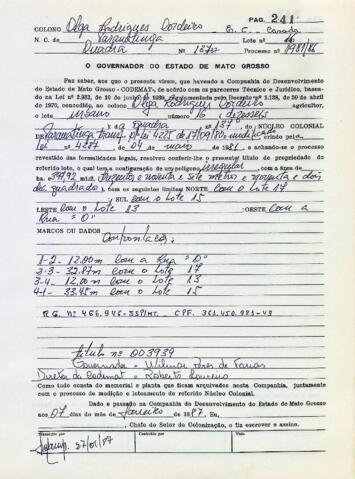 PAG. 241
COLONO Olga Rodrigues Cordeiro E. C. Casada
N. C. de Paranatinga Lote nº 16
Quadra Nº 137 Processo nº
O GOVERNADOR DO ESTADO DE MATO GROSSO
Faz saber, aos que o presente virem, que havendo a Companhia de Desenvolvimento
do Estado de Mato Grosso - CODEMAT, de acordo com os pareceres Técnico e Jurídico, basea-
do na Lei nº 2.933, de 10 de junho de, regulamentada pelo Decreto nº 2.138, de 30 de abril
de 1970, concedido, ao colono Olga Rodrigues Cordeiro agricultor,
o lote urbano número 16 dezesseis
da quadra nº 137, do NÚCLEO COLONIAL
Paranatinga Lei 4225 de 17/09/80 modificado
Lei nº 4287, de 04 de maio de 1981, e achando-se o processo
revestido das formalidades legais, resolveu conferir-lhe o presente título de propriedade do
referido lote, o qual tem a configuração de um polígono irregular, com a área de
397,92 mt2, trezentos e noventa e sete metros e noventa e dois
dec quadrado), com os seguintes limites: NORTE com o Lote 17
SUL com o Lote 15
LESTE com o Lote 13 : OESTE com a
Rua "O"
MARCOS OU DADOS
Confrontações:
1-2- 12.00m com a Rua "O"
2-3- 32.87m com o Lote 17
3-4- 12.00m com o Lote 13
4-1- 33.45m com o Lote 15
R.G. nº 466.946-SSP/MT. CPF. 361.450.983-49
título nº 003939
Governador - Wilmar Peres de Farias
Diretor da Codemat - Roberto Loureiro
Como tudo consta do memorial e planta que ficam arquivados nesta Companhia, juntamente
com o processo de medição e loteamento do referido Núcleo Colonial.
Dado e passado na Companhia de Desenvolvimento do Estado de Mato Grosso
aos 07 dias do mês de Janeiro de 1987. Eu,
, Chefe do Setor de Colonização, o fiz escrever e assino.
Transcrito por Conferido por Visto
27/01/87